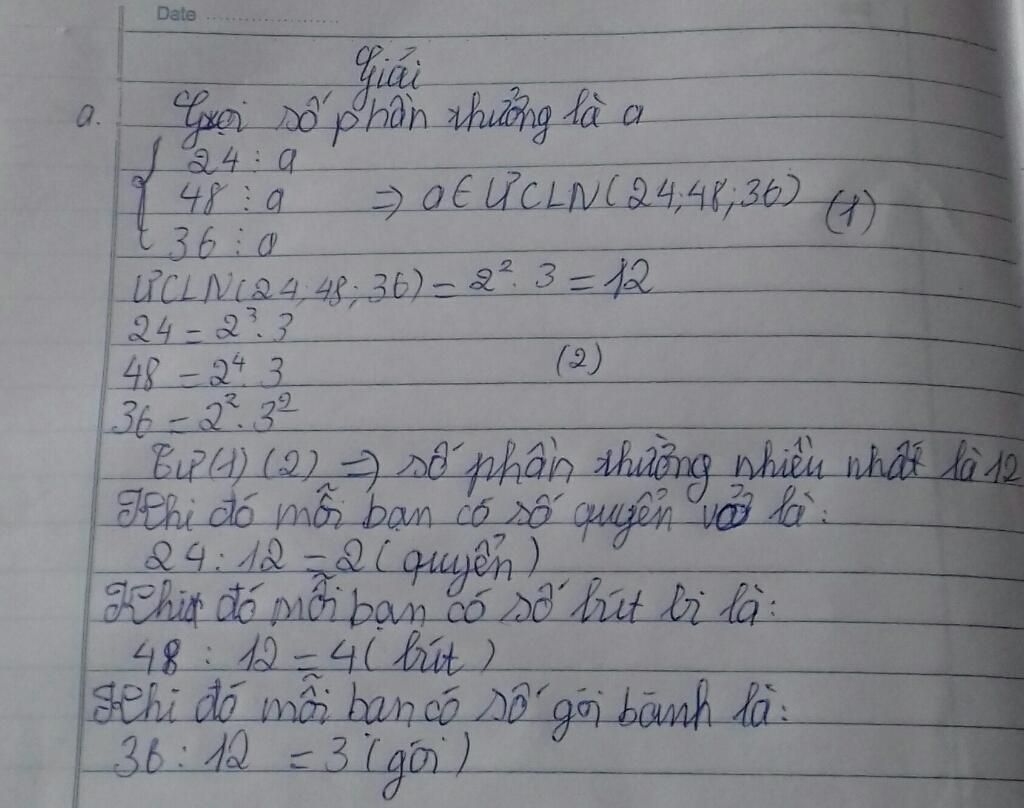 Date
Giải
a. Gọi số phần thưởng là a
24 ⋮ a
48 ⋮ a => a ∈ ƯCLN(24;48;36) (1)
36 ⋮ a
ƯCLN(24;48;36) = 2². 3 = 12
24 = 2³. 3
48 = 2⁴. 3 (2)
36 = 2². 3²
Từ (1) (2) => số phần thưởng nhiều nhất là 12
Khi đó mỗi bạn có số quyển vở là:
24 : 12 = 2 (quyển)
Khi đó mỗi bạn có số bút bi là:
48 : 12 = 4 (bút)
Khi đó mỗi bạn có số gói bánh là:
36 : 12 = 3 (gói)